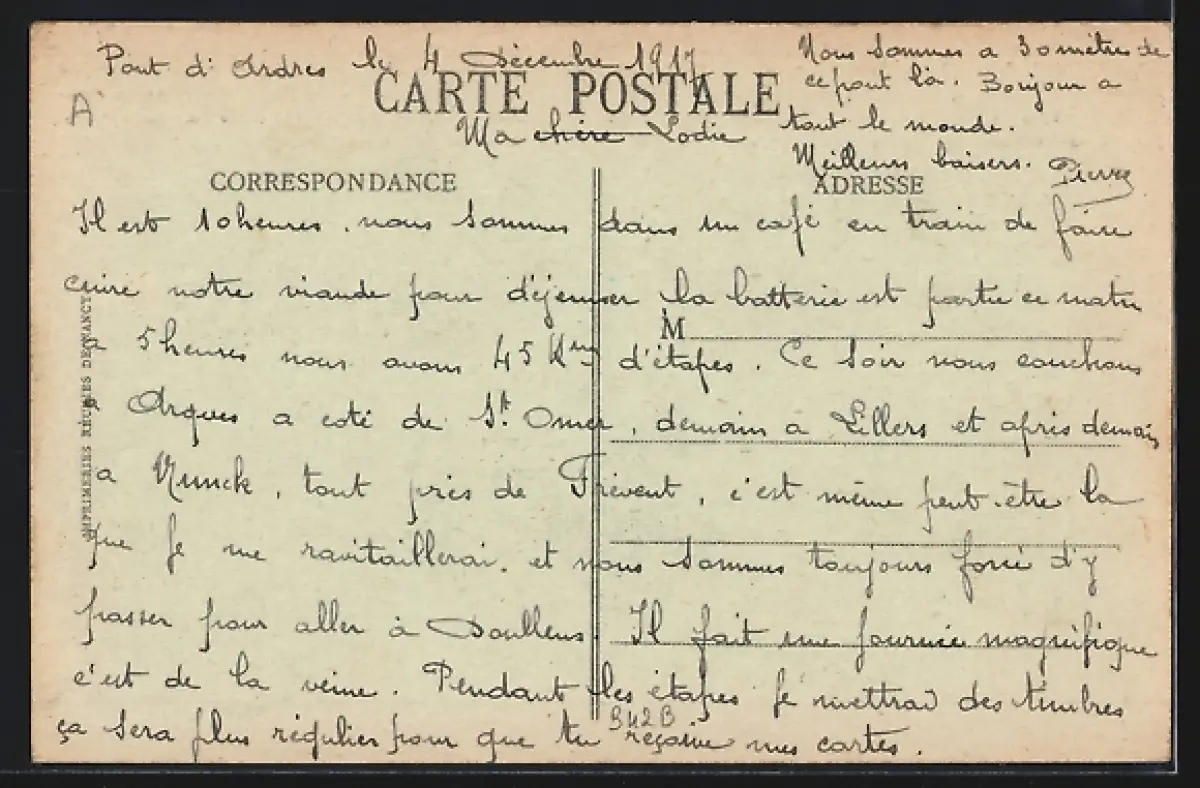 Pont d'Ardres le 4 Décembre 1917
Nous sommes a 30 mètre de
ce pont là. Bonjour a
tout le monde.
Meilleurs baisers. Pierre
A
CARTE POSTALE
Ma chère Lodie
CORRESPONDANCE
ADRESSE
Il est 10 heures. nous sommes dans un café en train de faire
cuire notre viande pour déjeuner la batterie est partie ce matin
M
a 5 heures nous avons 45 Kms d'étapes. Ce soir nous couchons
a Arques a coté de St. Omer, demain a Lillers et après demain
a Nunck, tout près de Frévent, c'est même peut-être la
que je me ravitaillerai. et nous sommes toujours forcé d'y
passer pour aller à Doullens. Il fait une journée magnifique
c'est de la veine. Pendant les étapes je mettrai des timbres
ça sera plus régulier pour que tu reçoive mes cartes.
IMPRIMERIES RÉUNIES DE NANCY